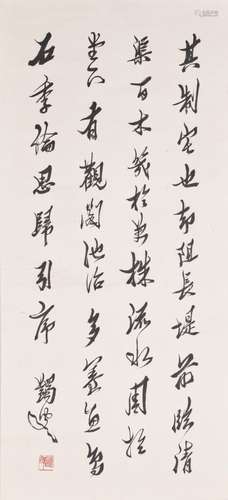 其制宅也却阻長堤前臨清
渠百木幾於萬株流水周於
堂下有觀閣池沼多養魚鳥
石季倫思歸引序